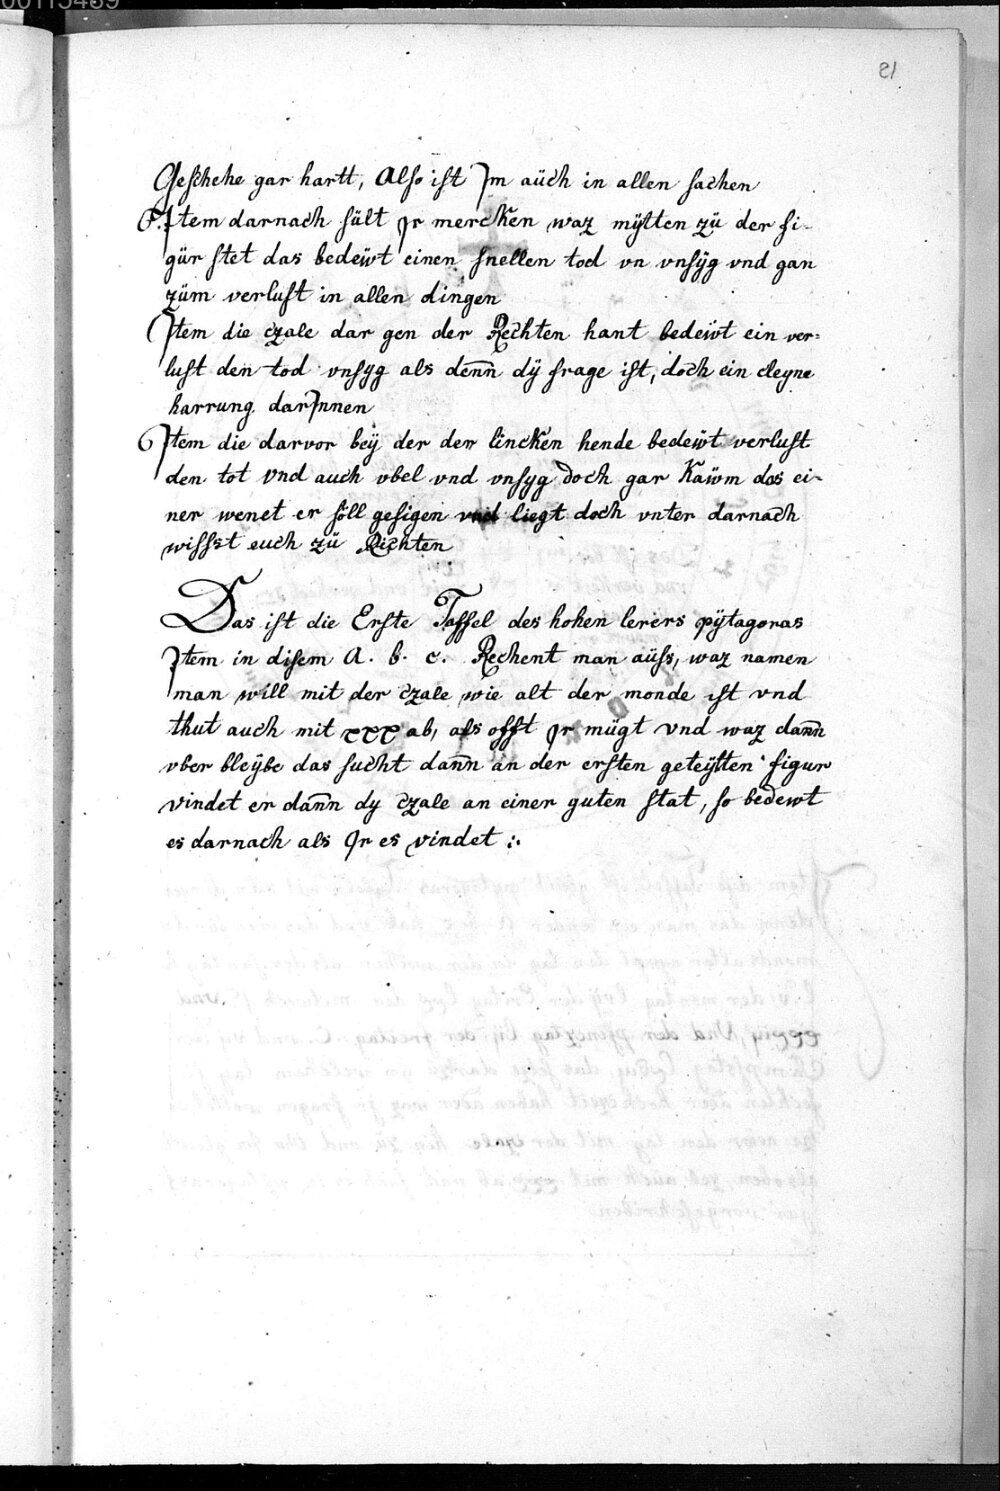 00115489
81
Geschehe gar hartt, Also ist Im aüch in allen sachen
Item darnach sült Ir mercken waz mÿtten zü der fi-
gür stet das bedeẅt einen snellen tod vn vnsÿg vnd gan
züm verlust in allen dingen
Item die czale dar gen der Rechten hant bedeẅt ein ver=
lust den tod vnsyg als denn̄ dÿ frage ist, doch ein cleyne
harrung darInnen
Item die darvor beÿ der den lincken hende bedeẅt verlust
den tot vnd auch vbel vnd vnsyg doch gar Kaẅm das ei-
ner wenet er söll gesigen vnd liegt doch vnter darnach
wissst euch zü Richten
Das ist die Erste Taffel des hohen lerers pÿtagoras
Item in disem A. b. c. Rechent man aüss, waz namen
man will mit der czale wie alt der monde ist vnd
thut auch mit xxx ab, als offt Ir mügt vnd waz dann̄
vber bleÿbe das sucht dann̄ an der ersten geteÿlten figur
vindet er dann̄ dy czale an einer guten stat, so bedewt
es darnach als Ir es vindet :.